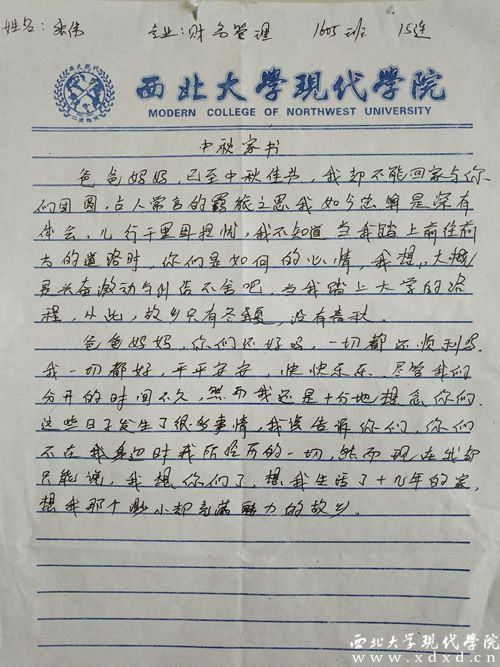 姓名：张伟 专业：财务管理 1605班 15连
西北大学現代學院
MODERN COLLEGE OF NORTHWEST UNIVERSITY
中秋家书
爸爸妈妈，已至中秋佳节，我却不能回家与你
们团圆，古人常言的羁旅之思我如今总算是深有
体会，儿行千里母担忧，我不知道当我踏上前往前
方的道路时，你们是如何的心情，我想，大概
是兴奋激动与不舍吧，当我踏上大学的路
程，从此，故乡只有冬夏，没有春秋。
爸爸妈妈，你们还好吗，一切都还顺利吗，
我一切都好，平平安安，快快乐乐。尽管我们
分开的时间不久，然而我还是十分地想念你们，
这些日子发生了很多事情，我没告诉你们，你们
不在我身边时我所经历的一切，然而现在我却
只能说，我想你们了，想我生活了十几年的家，
想我那个渺小却充满魅力的故乡。
西北大学現代學院
www.xdxd.cn